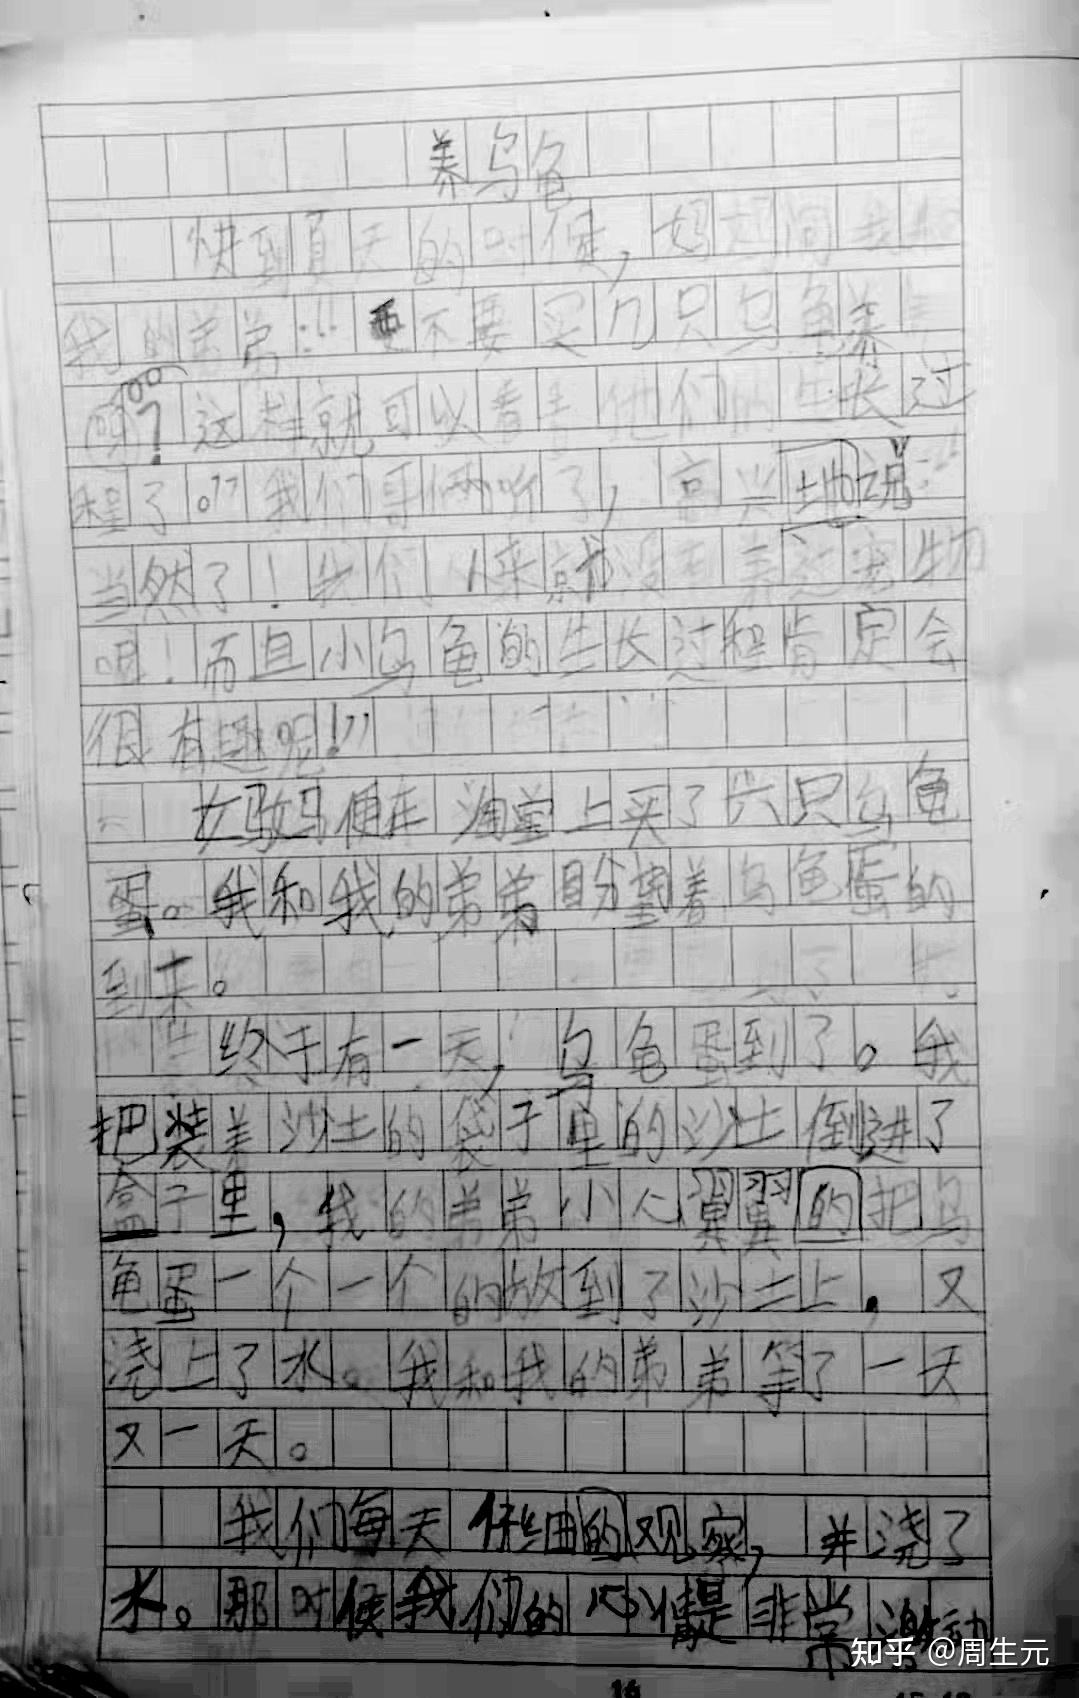 养乌龟
快到夏天的时候，妈妈问我和
我的弟弟：“要不要买几只乌龟来养
呀？这样就可以看看他们的生长过
程了。”我们哥俩听了，高兴地说：“
当然了！我们从来就没有养过宠物
呢！而且小乌龟的生长过程肯定会
很有趣呢！”
妈妈便在淘宝上买了六只乌龟
蛋。我和我的弟弟盼望着乌龟蛋的
到来。
终于有一天，乌龟蛋到了。我
把装着沙土的袋子里的沙土倒进了
盒子里，我的弟弟小心翼翼的把乌
龟蛋一个一个的放到了沙土上，又
浇上了水。我和我的弟弟等了一天
又一天。
我们每天仔细的观察，并浇了
水。那时候我们的心情是非常激动
知乎 @周生元
16